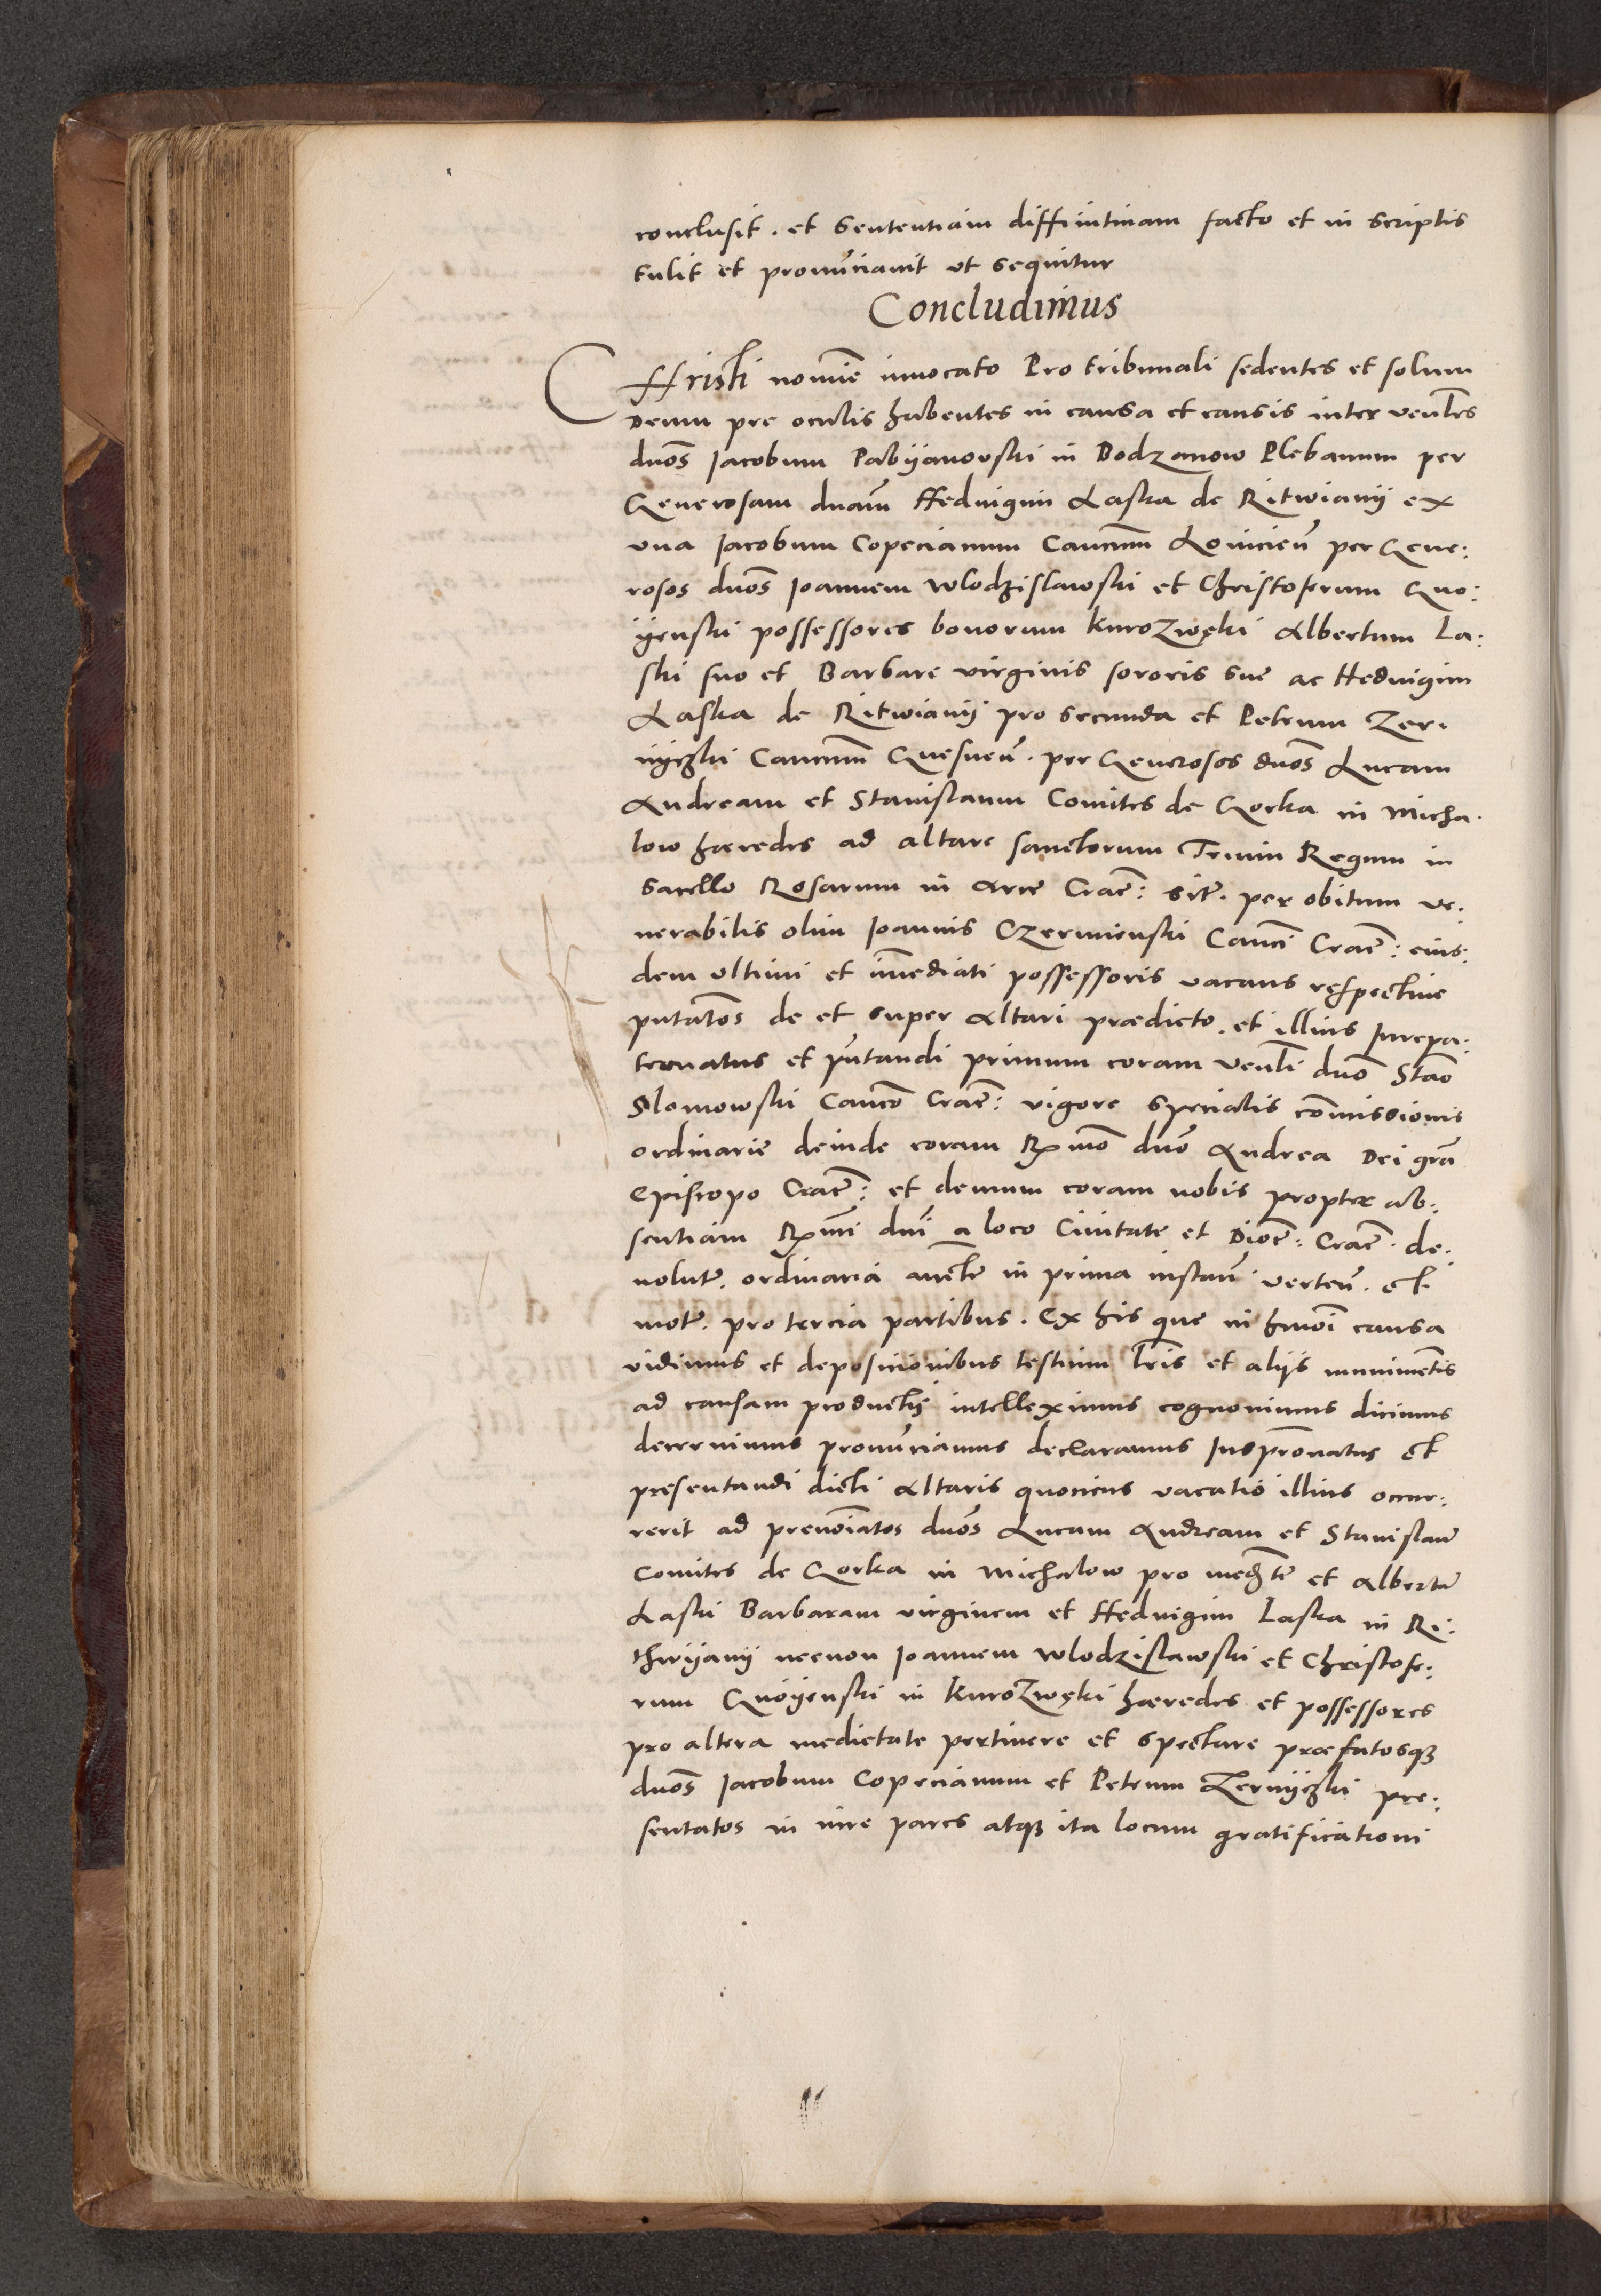 conclusit. et Sententiam diffinitivam facto et in scriptis
tulit et pronũciavit ut sequitur
Concludimus
CHristi nomie invocato Pro tribunali sedentes et solum
Deum pre oculis habentes in causa et causis inter venles
dnos Jacobum Pabÿanovski in Bodzanow Plebanum per
Generosam dnam Hedvigim Laska de Ritwianÿ ex
una Jacobum Copecianum Canonm Lovicien per Gene:
rosos dnos Joannem Wlodzislawski et Christoferum Gno:
ÿenski possessores bonorum KuroZwęki Albertum La:
ski suo et Barbare virginis sororis sue ac Hedvigim
Laska de Ritwianÿ pro secunda et Petrum Zer.
nÿczki Canonm Gnesnen. per Generosos dnos Lucam
Andream et Stanislaum Comites de Gorka in Micha.
low hæredes ad altare sanctorum Trium Regum in
sacello Rosarum in Arce Crac: sit. per obitum ve:
nerabilis olim Joannis Czermienski Canci Crac: eius:
dem ultimi et imediati possessoris vacans respective
pntatos de et super Altari prædicto. et illius Jurepa:
tronatus et pntandi primum coram venli dno Stao
Slomowski Canco Crac: vigore specialis comissionis
ordinarie deinde coram Rxmo dno Andrea Dei gra
Episcopo Crac: et demum coram nobis propter ab:
sentiam Rxmi dni a loco Civitate et Dioc: Crac. de:
volut. ordinaria aucte in prima instan verten. et
mot. pro tercia partibus. Ex his que in hmoi causa
vidimus et deposicionibus testium lris et alÿs munimentis
ad causam productis intelleximus cognovimus dicimus
decernimus pronũciamus declaramus Juspronatus et
presentandi dicti Altaris quociens vacatio illius occur:
rerit ad prenoiatos dnos Lucam Andream et Stanislau
Comites de Gorka in Michalow pro medte et Albertu
Laski Barbaram virginem et Hedvigim Laska in Ri:
thwÿanÿ necnon Joannem Wlodzislawski et Christofe:
rum Gnoÿenski in KuroZwęki hæredes et possessores
pro altera medietate pertinere et spectare præfatosq
dnos Jacobum Copecianum et Petrum Zernÿczki pre:
sentatos in iure pares atq ita locum gratificationi